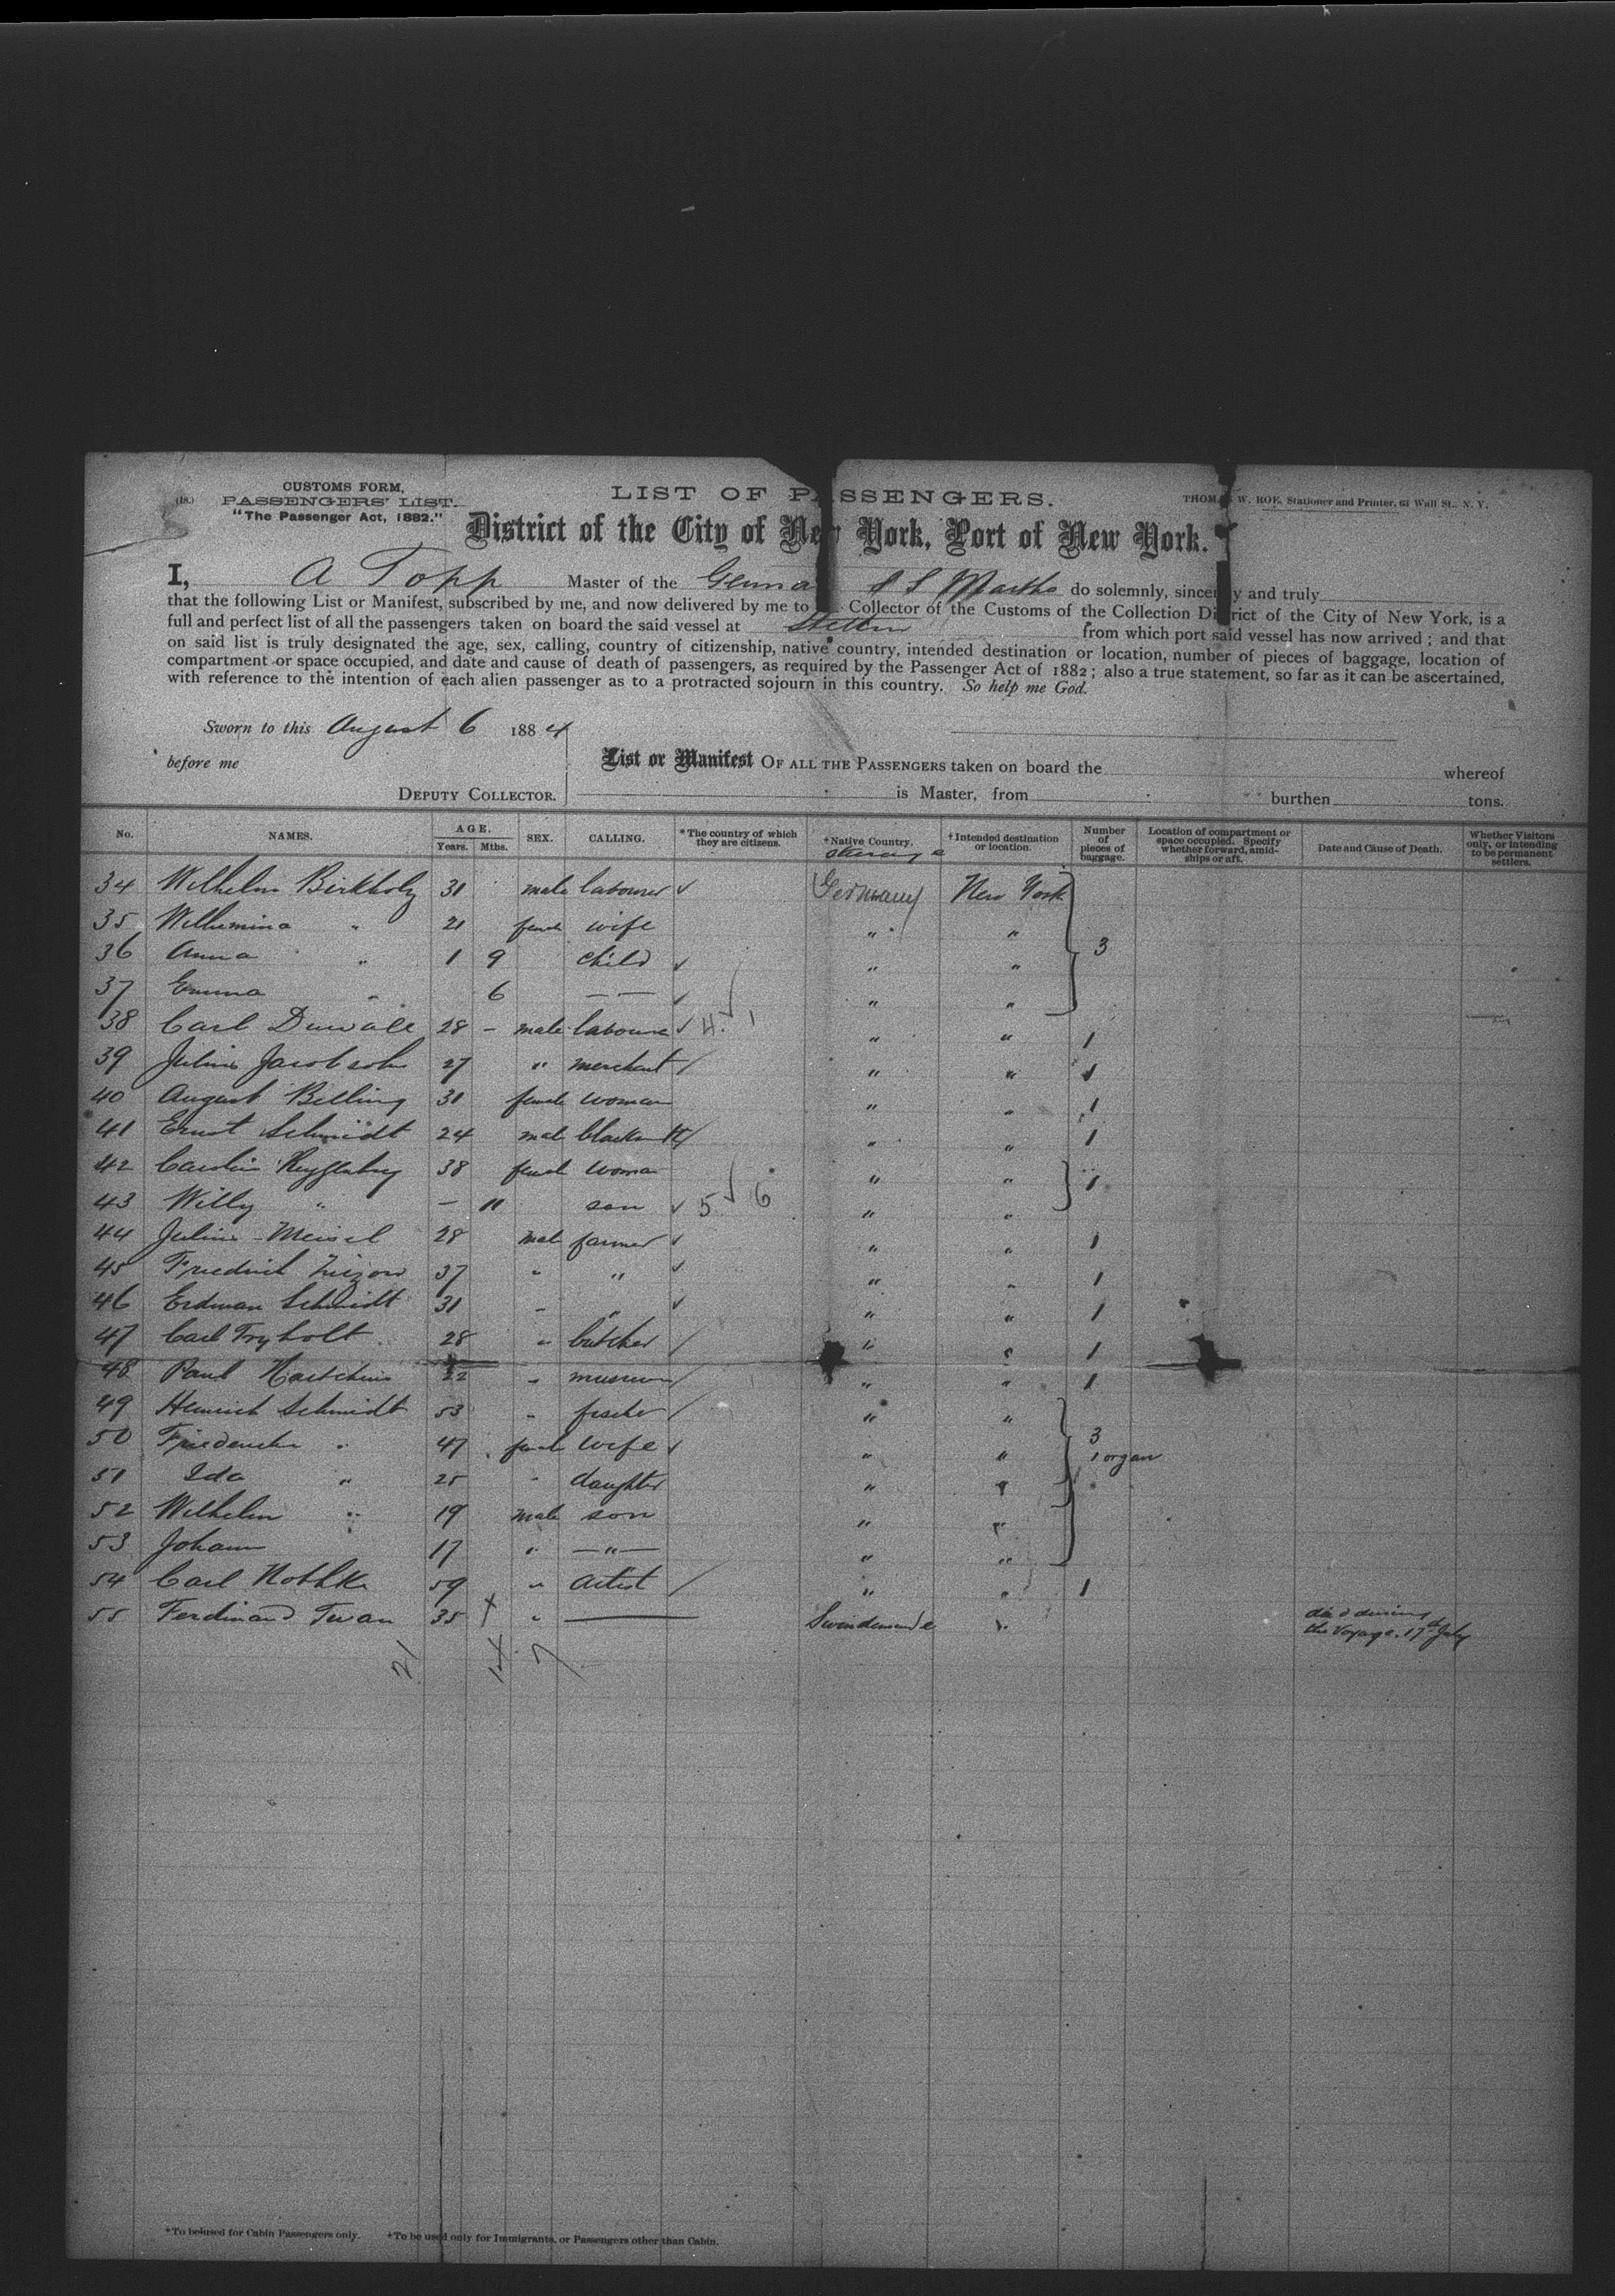 (18.)
CUSTOMS FORM,
PASSENGERS' LIST.
"The Passenger Act, 1882."
LIST OF PASSENGERS.
THOMAS W. ROE, Stationer and Printer, 61 Wall St., N. Y.
District of the City of New York, Port of New York.
I, A Topp Master of the German S S Martha do solemnly, sincerely and truly
that the following List or Manifest, subscribed by me, and now delivered by me to Collector of the Customs of the Collection District of the City of New York, is a
full and perfect list of all the passengers taken on board the said vessel at Stettin from which port said vessel has now arrived; and that
on said list is truly designated the age, sex, calling, country of citizenship, native country, intended destination or location, number of pieces of baggage, location of
compartment or space occupied, and date and cause of death of passengers, as required by the Passenger Act of 1882; also a true statement, so far as it can be ascertained,
with reference to the intention of each alien passenger as to a protracted sojourn in this country. So help me God.
Sworn to this August 6 1884
before me
DEPUTY COLLECTOR.
List or Manifest OF ALL THE PASSENGERS taken on board the whereof
is Master, from burthen tons.
No. NAMES. AGE. Years. Mths. SEX. CALLING. *The country of which they are citizens. †Native Country. †Intended destination or location. Number of pieces of baggage. Location of compartment or space occupied. Specify whether forward, amidships or aft. Date and Cause of Death. Whether Visitors only, or intending to be permanent settlers.
steerage
34 Wilhelm Birkholz 31 male labourer ✓ Germany New York
35 Wilhemina " 21 female wife " "
36 Anna " 1 9 child ✓ " " 3
37 Emma " 6 — — ✓ " "
38 Carl Duwall 28 – male labourer ✓ 4 ✓ 1 " " 1
39 Julius Jacobsohn 27 " merchant / " " 1
40 August Belling 31 female woman " " 1
41 Ernst Schmidt 24 male / " " 1
42 38 female woman " " 1
43 Willy " – 11 son ✓ 5 ✓ 6 " "
44 Julius Meisel 28 male farmer ✓ " " 1
45 Friedrich 37 " " ✓ " " 1
46 Erdman Schmidt 31 " " ✓ " " 1
47 Carl Tryholt 28 " butcher / " " 1
48 Paul 22 " / " " 1
49 Heinrich Schmidt 53 " fischer / " "
50 " 47 female wife ✓ " " 3 1 organ
51 Ida " 25 " daughter " "
52 Wilhelm " 19 male son " "
53 Johann 17 " —"— " "
54 Carl Nothke 59 " artist / " " 1
55 Ferdinand Twan 35 + " — Swinemünde " died during the voyage. 17th July
21 14 7
*To be used for Cabin Passengers only. †To be used only for Immigrants, or Passengers other than Cabin.